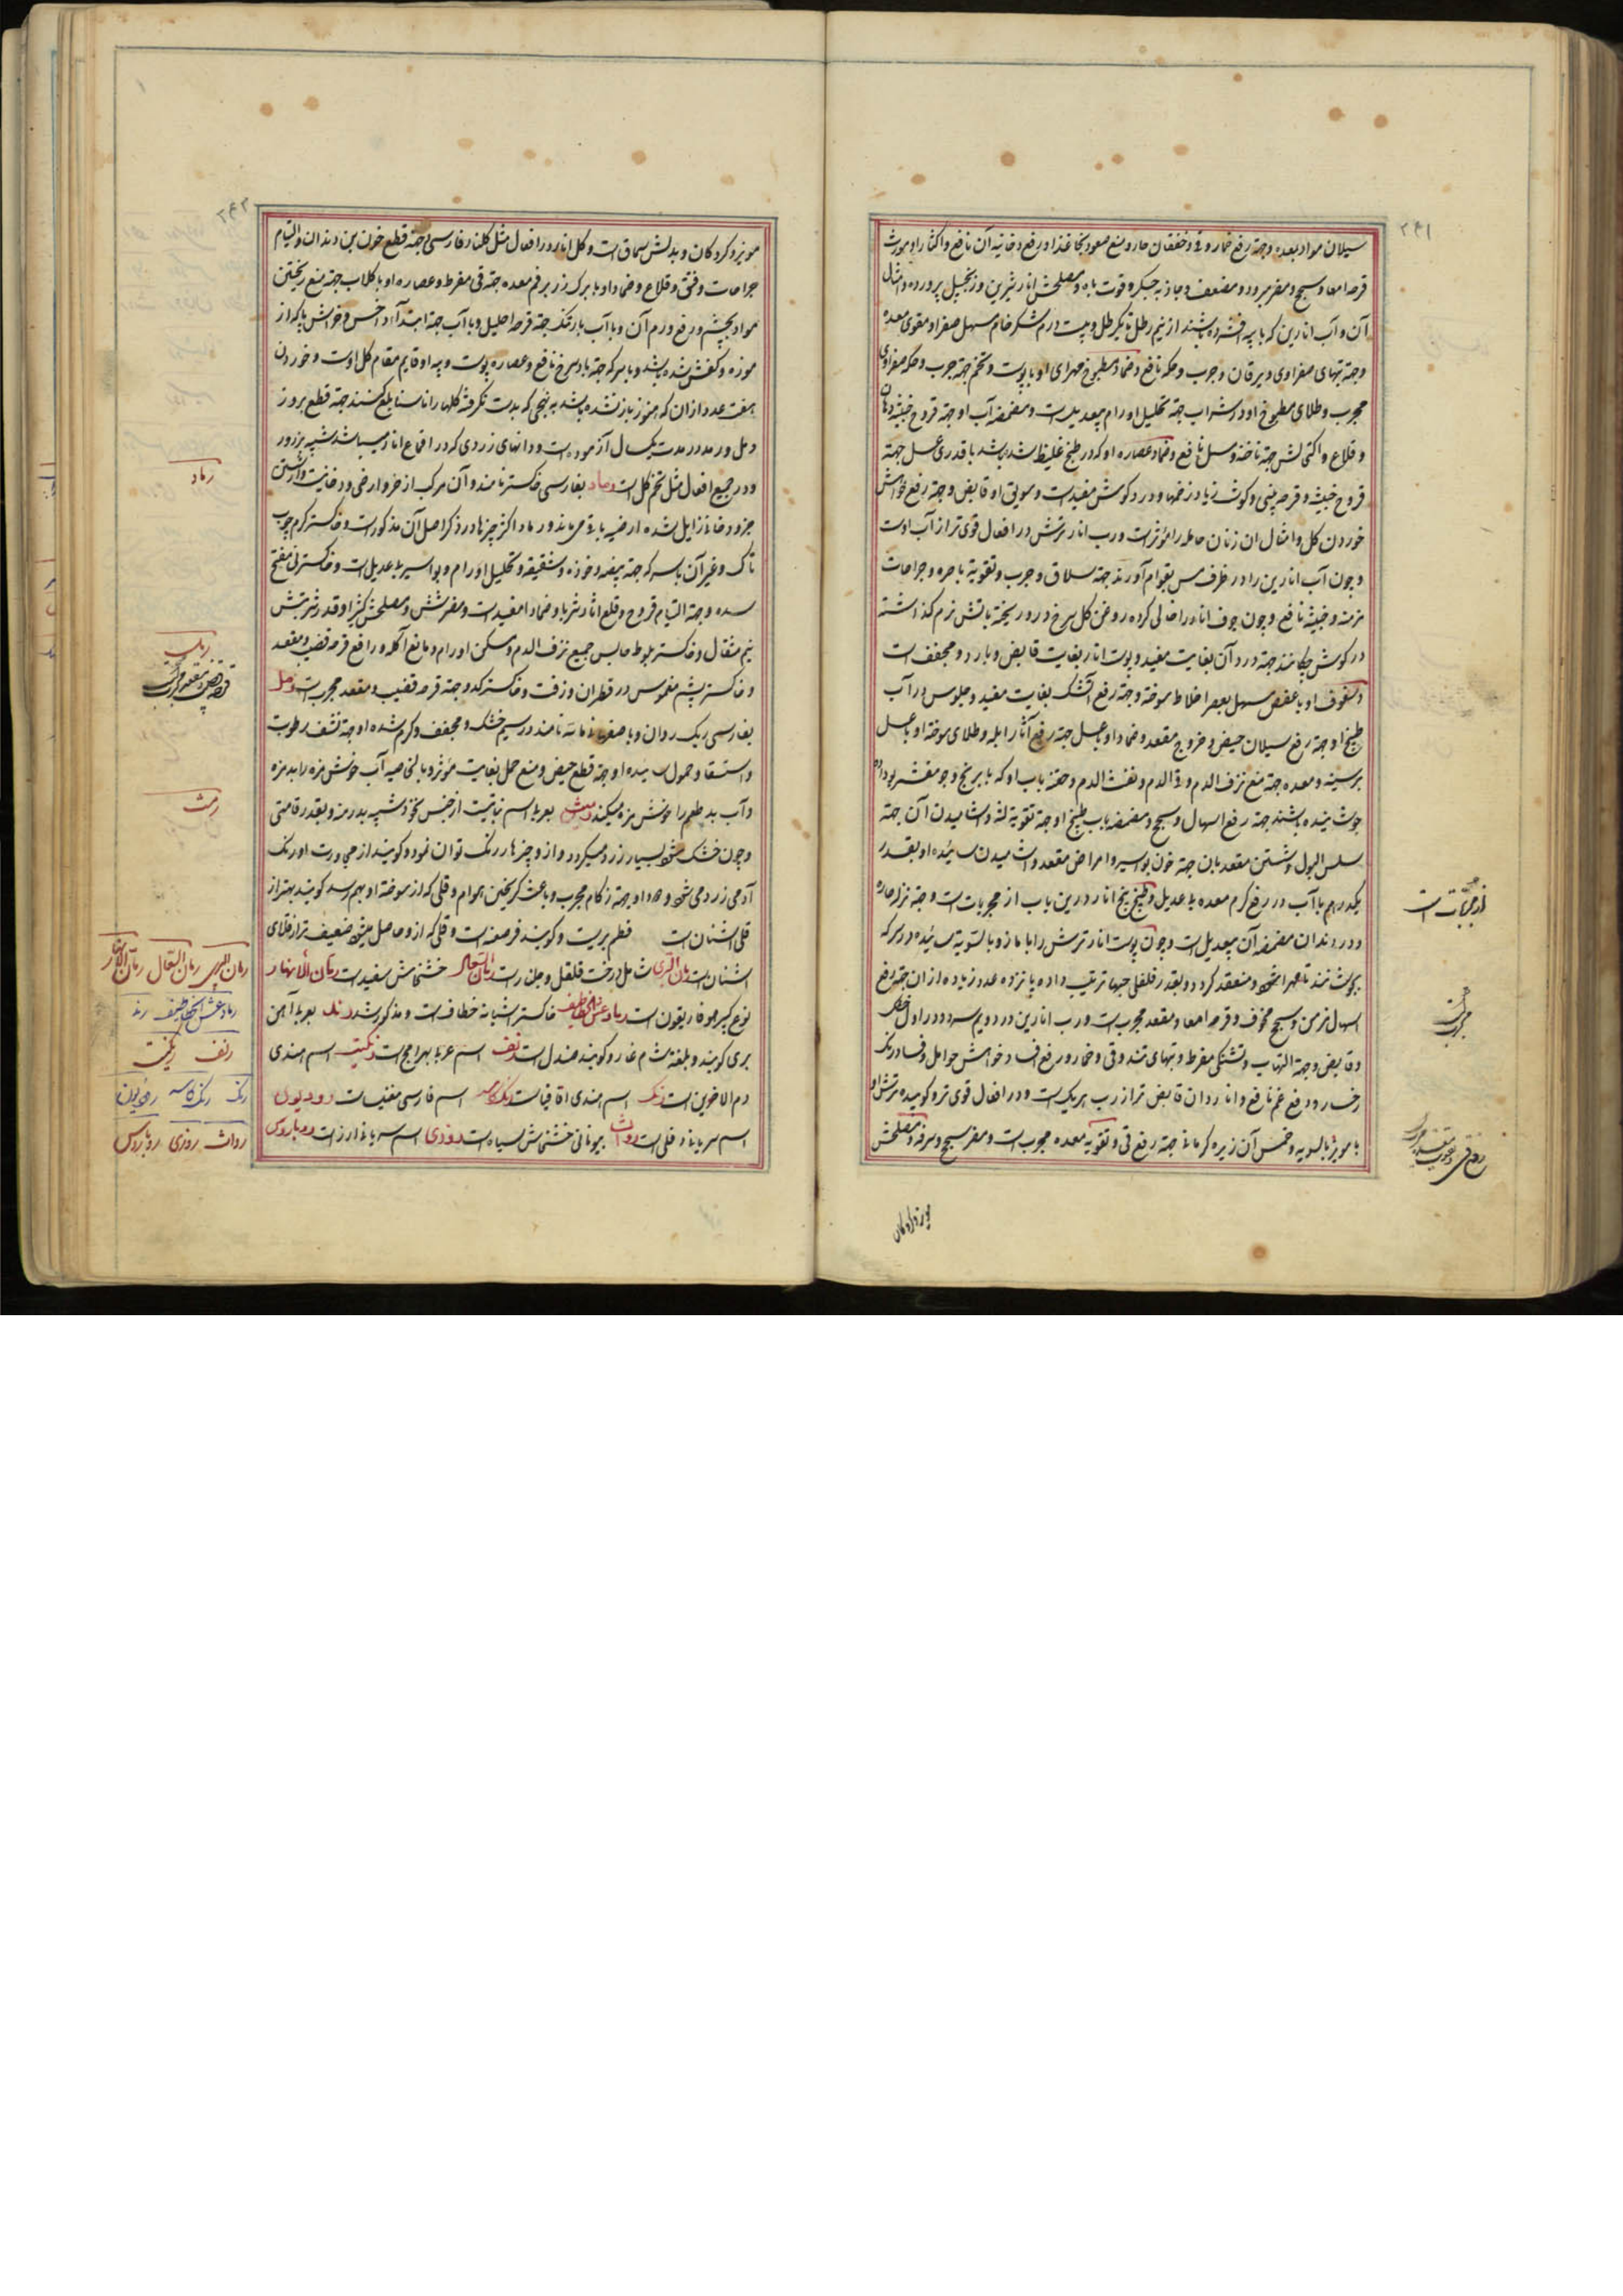 ۲۴۱
سیلان مواد بمعده وجهة رفع خمار وقی وخفقان حار ومنع صعود بخار غذا ورفع دخانیه آن نافع واکثار او مورث
قرحه امعا وسحج ومضر مبرود ومضعف وجاذبه جکر وقوت باه ومصلحش انار شیرین وزنجبیل پرورده وامثال
آن وآب انارین که با پیه افشرده باشند از نیم رطل تا یکرطل وبیست درم شکر خام مسهل صفرا ومقوی معده
وجهة تبهای صفراوی ویرقان وجرب وحکه نافع وضماد مطبوخ مهرای او با پوست وتخم جهة جرب وحکه صفراوی
مجرب وطلای مطبوخ او در شراب جهة تحلیل اورام بیعدیلست ومضمضه آب او جهة قروح خبیثه دهان
وقلاع واکتحالش جهة ناخنه وسبل نافع وضماد عصاره او که در طبخ غلیظ شده باشد با قدری عسل جهة
قروح خبیثه وقرحه بینی وکوشت زیاد زخمها ودرد کوش مفیدست وسویق او قابض وجهة رفع خواهش
خوردن کل وامثال ان زنان حامله را مؤثرست ورب انار ترش در افعال قوی تر از آب اوست
وچون آب انارین را در ظرف مس بقوام آورند جهة سلاق وجرب وتقویة باصره وجراحات
مزمنه وخبیثه نافع وچون جوف انار را خالی کرده روغن کل سرخ در او ریخته بآتش نرم کذاشته
در کوش چکانند جهة درد آن بغایت مفید وپوست انار بغایت قابض وبارد ومجفف است
وسفوف او با عفص مسهل بعصر اخلاط سوخته وجهة رفع آتشک بغایت مفید وجلوس در آب
طبیخ او جهة رفع سیلان حیض وخروج مقعد وضماد او با عسل جهة رفع آثار ابله وطلای سوخته او با عسل
بر سینه ومعده جهة منع نزف الدم وقی الدم ونفث الدم وحقنه بآب او که با برنج وجو مقشر بو داده
جوشانیده باشند جهة رفع اسهال وسحج ومضمضه بآب طبیخ او جهة تقویة لثه واشامیدن آن جهة
سلس البول وشستن مقعد بان جهة خون بواسیر وامراض مقعد واشامیدن سائیده او بقدر
یکدرهم با آب در رفع کرم معده بی عدیل وطبیخ بیخ انار درین باب از مجربات است وجهة نزله حاره
ودرد دندان مضمضه آن بیعدیلست وچون پوست انار ترش را با مازو بالسویه سائیده در سرکه
بجوشانند تا مهرا شود ومنعقد کردد وبقدر فلفلی حبها ترتیب داده پانزده عدد زیاده از ان جهة رفع
اسهال مزمن وسحج مخوف وقرحه امعا ومقعد مجربست ورب انارین در دویم سرد ودر اول خشک
وقابض وجهة التهاب وتشنکی مفرط وتبهای تند وقی وخمار ورفع فساد خواهش حوامل وفساد رنک
رخسار ودفع غم نافع وانار دان قابض تر از رب هریک است ودر افعال قوی تر وکوبیده ترش او
با مویز بالسویه وخمس آن زیره کرمانی جهة رفع قی وتقویة معده مجرب است ومضر سحج وسرفه ومصلحش
از مجربات است
مجرب است
مویز وکردکان
۲۴۲
مویز وکردکان وبدلش سماق است وکل انار در افعال مثل کلنار فارسی وجهة قطع خون بن دندان والتیام
جراحات وفتق وقلاع وضماد او با برک رز بر فم معده جهة قی مفرط وعصاره او با کلاب جهة منع ریختن
مواد بچشم ورفع ورم آن وبا آب بارتنک جهة قرحه احلیل وبا آب جهة ابتدآء داخس وخراش پا که از
موزه وکفش شده باشد وبا سرکه جهة باد سرخ نافع وعصاره پوست وپیه او قایم مقام کل اوست وخوردن
هفت عدد از ان که هنوز باز نشده باشد به نهجی که بدست نکرفته کلها را ناسنا بلع کنند جهة قطع بروز
دمل ورمد در مدت یکسال آزموده است ودانهای زردی که در اقماع انار میباشد شبیه بزرورد
ودر جمیع افعال مثل تخم کل است رماد بفارسی خاکستر نامند وآن مرکب از جزو ارضی ودخانیست واز شستن
جزو دخانی زایل شده ارضیه باقی می ماند ورماد اکثر چیزها در ذکر اصل آن مذکورست وخاکستر کرم چوب
تاک وغیر آن با سرکه جهة بیضه وخوذه وشقیقه وتحلیل اورام وبواسیر بی عدیل است وخاکستر نی مفتح
سده وجهة التیام قروح وقلع آثار شربا وضمادا مفیدست ومضر شش ومصلحش کثیرا وقدر شربتش
نیم مثقال وخاکستر بلوط حابس جمیع نزف الدم ومسکن اورام ومانع آکله ورافع قرحه قضیب ومقعد
وخاکستر پشم مغموس در قطران وزفت وخاکستر کدو جهة قرحه قضیب ومقعد مجربست رمل
بفارسی ریک روان وباصفهانی ماسه نامند در سیم خشک ومجفف وکرم شده او جهة نشف رطوبت
واستسقا وحمول سائیده او جهة قطع حیض ومنع حمل بغایت مؤثر وبالخاصیه آب خوش مزه را بد مزه
وآب بد طعم را خوش مزه میکند رمث بعربی اسم نباتیست از جنس نخود شبیه بدرمنه وبقدر قامتی
وچون خشک شود بسیار زرد میکردد واز و چیزها رنک توان نمود وکویند از مجاورت او رنک
آدمی زرد می شود ودود او جهة زکام مجرب وباعث کریختن هوام وقلی که از سوخته او بهم رسد کویند بهتر از
قلی اشنان است قطم بریست وکویند قرصعنه است وقلی که از و حاصل میشود ضعیف تر از قلای
اشنانست رمان البری شامل درخت فلفل وجلنارست رمان السعال خشخاش سفیدست رمان الانهار
نوع کبیر هوفاریقون است رماد عش الخطاطیف خاکستر اشیانه خطاف است ومذکور شد رند بعربی آهن
بری کویند وبلغة شام غار وکویند صندل است رنف اسم عربی بهرامج است رنکیت اسم هندی
دم الاخوین است رنک اسم هندی اقاقیاست رنک کاسه اسم فارسی مغنیسات رودیون
اسم سریانی دفلی است رواث بیونانی خشخاش سیاه است روذی اسم سریانی ارز است روباروس
رماد
رمل
رمث
رمان البری رمان السعال رمان الانهار
رماد عش الخطاطیف رند
رنف رنکیت
رنک رنک کاسه رودیون
رواث روذی روباروس